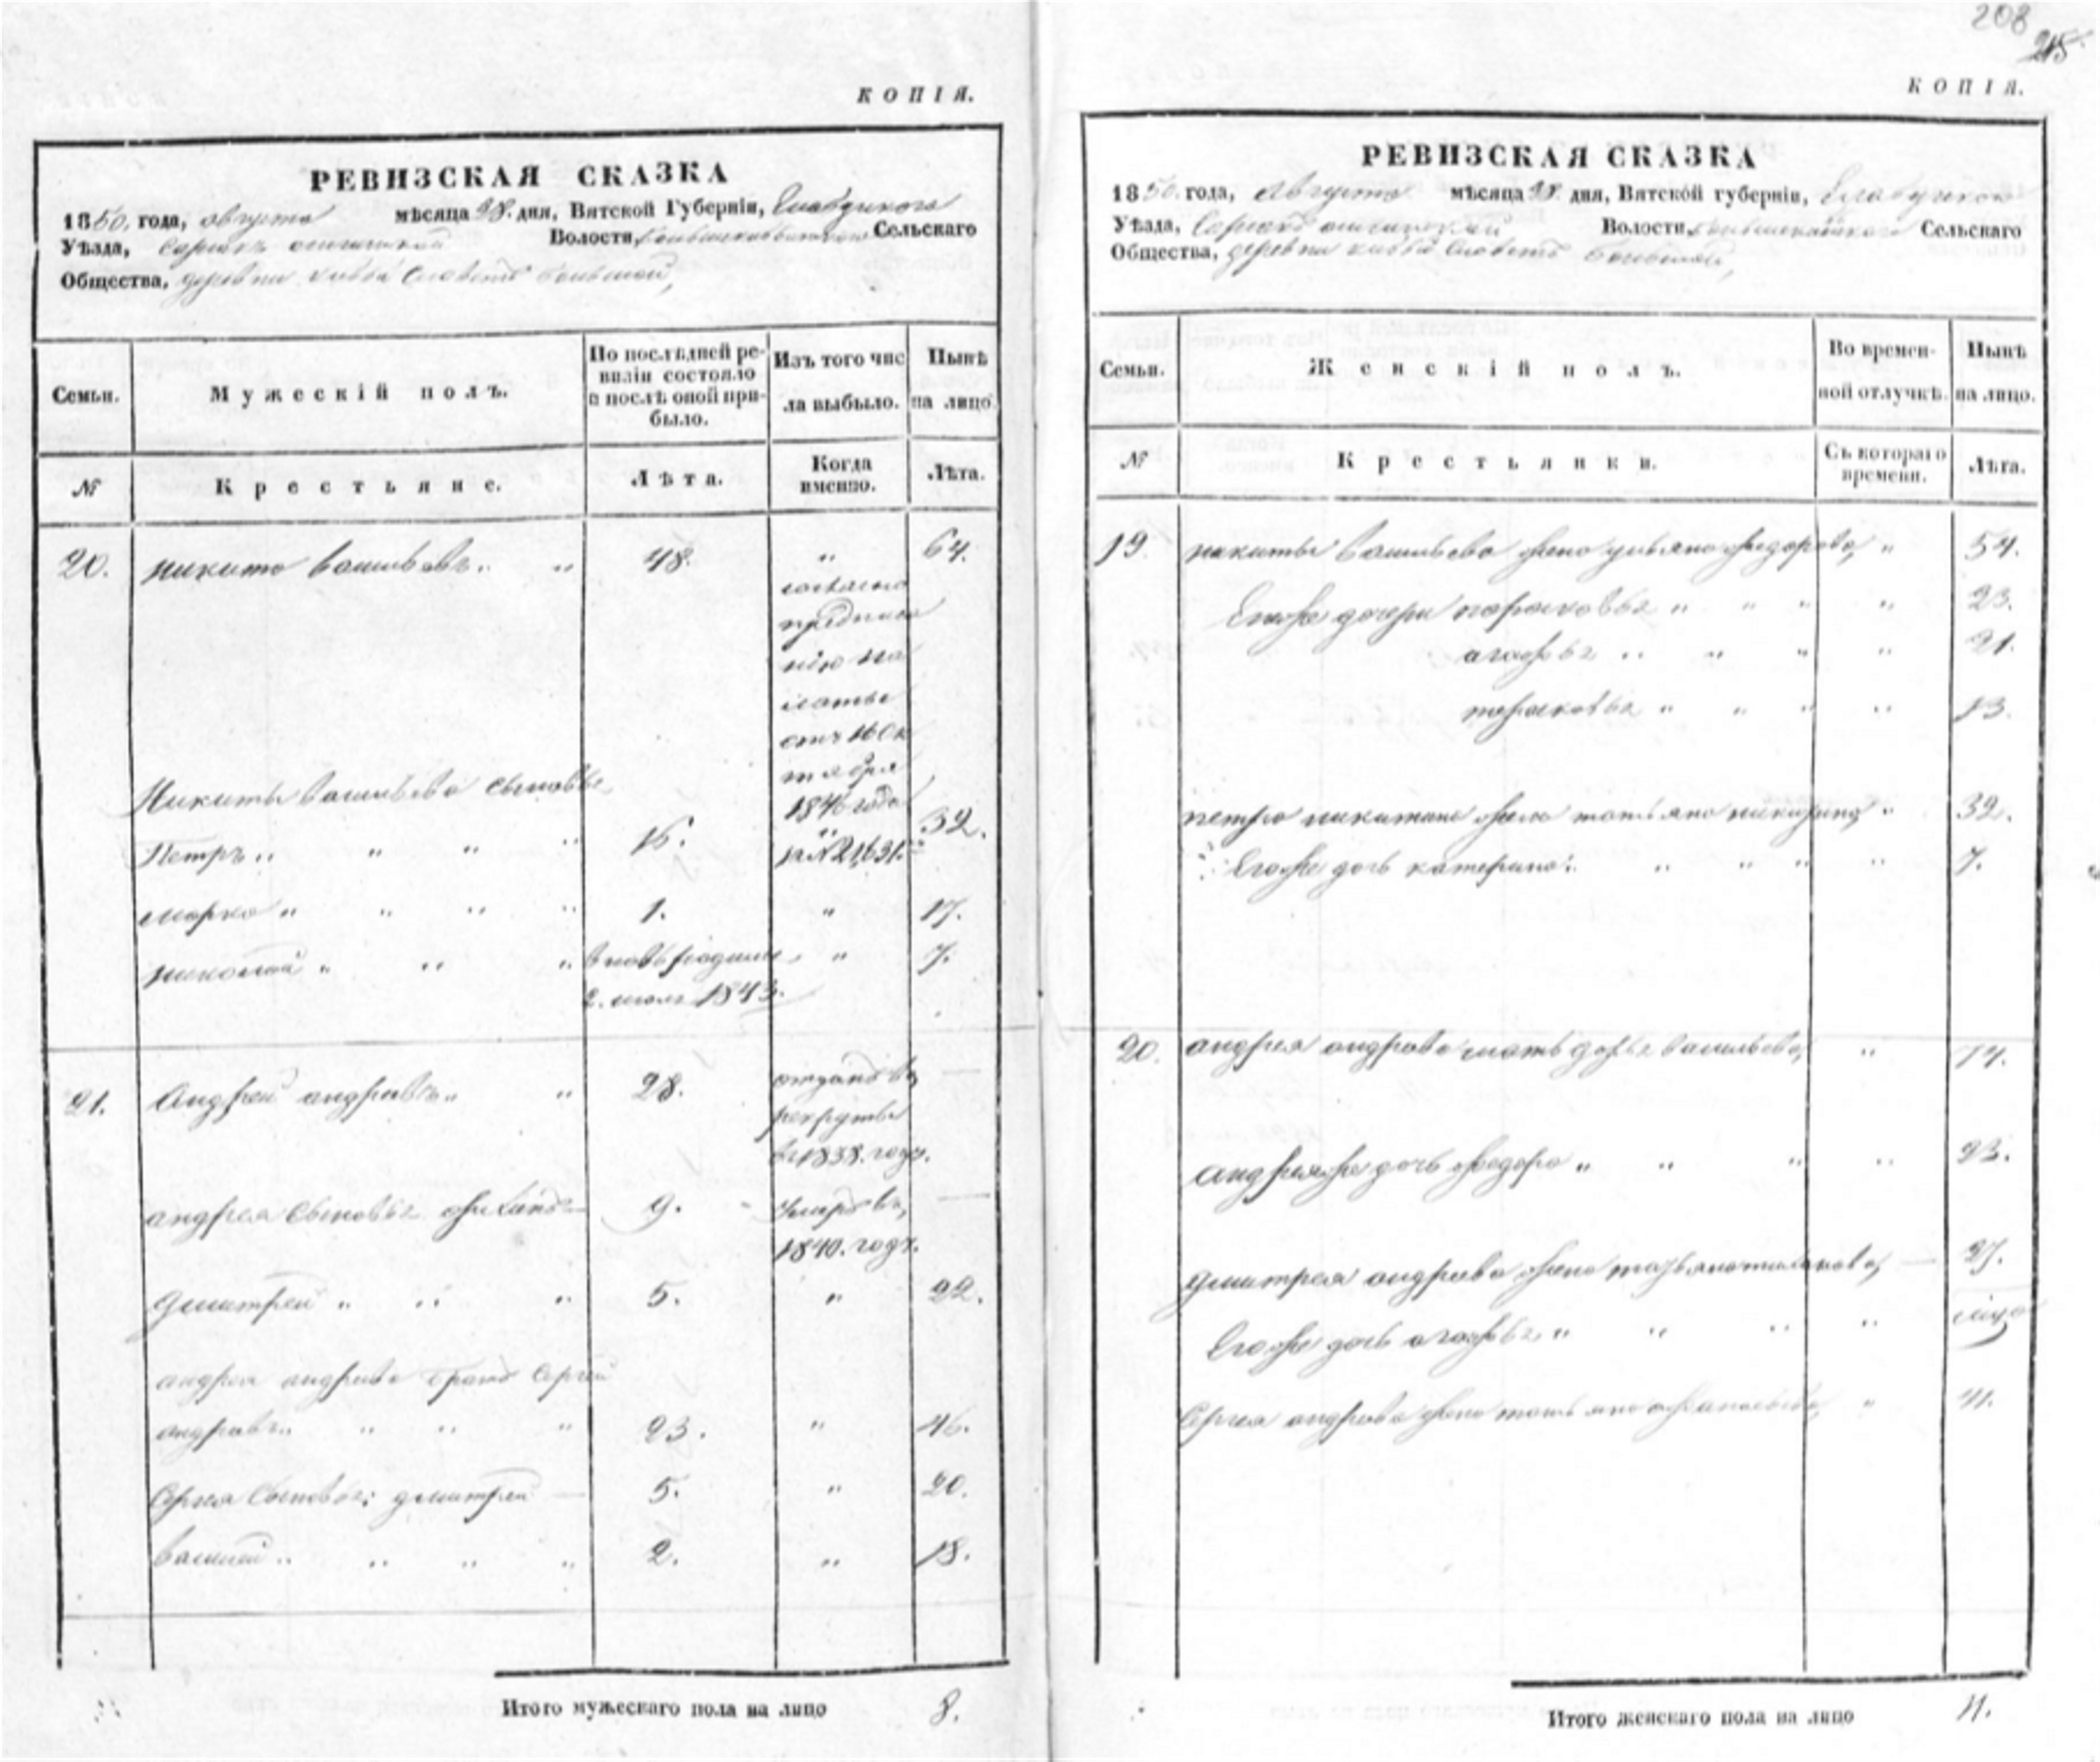 208
215
КОПІЯ.
РЕВИЗСКАЯ СКАЗКА
1850. года, августа мѣсяца 28. дня, Вятской Губерніи, Елабужского
Уѣзда, Волости, Сельскаго
Общества, деревни
Семьи.
Мужескій полъ.
По послѣдней ре-
визіи состояло
и послѣ оной при-
было.
Изъ того чис
ла выбыло.
Нынѣ
на лицо
№
Крестьяне.
Лѣта.
Когда
именно.
Лѣта.
20. никита васильевъ 48. 64.
согласно
предписа
нію па
латы
отъ 16 Ок
тября
1846 года
за № 21631.
Никиты васильева сыновья
Петръ 16. 32.
марко 1. 17.
николай вновь рожден 7.
2. июля 1843.
21. Андрей андреевъ 28. отданъ въ —
рекруты
въ 1838. году.
андрея сыновья 9. умеръ въ —
1840. году.
дмитрей 5. 22.
андрея андреева братъ сергей
андреевъ 23. 46.
Сергея сыновья: дмитрей — 5. 20.
василей 2. 18.
Итого мужескаго пола на лицо 8.
КОПІЯ.
РЕВИЗСКАЯ СКАЗКА
1850. года, августа мѣсяца 28. дня, Вятской губерніи, Елабужского
Уѣзда, Волости, Сельскаго
Общества, деревни
Семьи.
Женскій полъ.
Во времен-
ной отлучкѣ.
Нынѣ
на лицо.
№
Крестьянки.
Съ котораго
времени.
Лѣта.
19. никиты васильева жена ульяна федорова 54.
Егоже дочери парасковья 23.
агафья 21.
парасковья 13.
петра никитина жена татьяна 32.
Егоже дочь катерина 7.
20. андрея андреева мать дарья васильева 74.
андреяже дочь федора 23.
дмитрея андреева жена — 27.
Егоже дочь агафья
Сергея андреева жена татьяна афанасьева 41.
Итого женскаго пола на лицо 11.